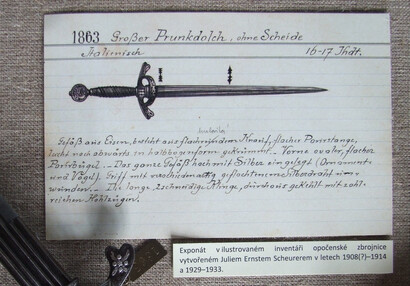 1863 Großer Prunkdolch, ohne Scheide
Italienisch 16-17 Jhdt.
Gefäß aus Eisen, besteht aus flachrundem Knauf, flacher Parierstange,
nach abwärts in halbbogenform gekrümmt. Vorne ovaler, flacher
Parirbügel. - Das ganze Gefäß hoch mit Silber eingelegt (Ornament
und Vögel). Griff mit geflochtenem Silberdraht um-
wunden. - Die lange, 2schneidige Klinge, durchaus gekehlt mit zahl-
reichen Hohlzügen.
Exponát v ilustrovaném inventáři opočenské zbrojnice
vytvořeném Juliem Ernstem Scheurerem v letech 1908(?)–1914
a 1929–1933.